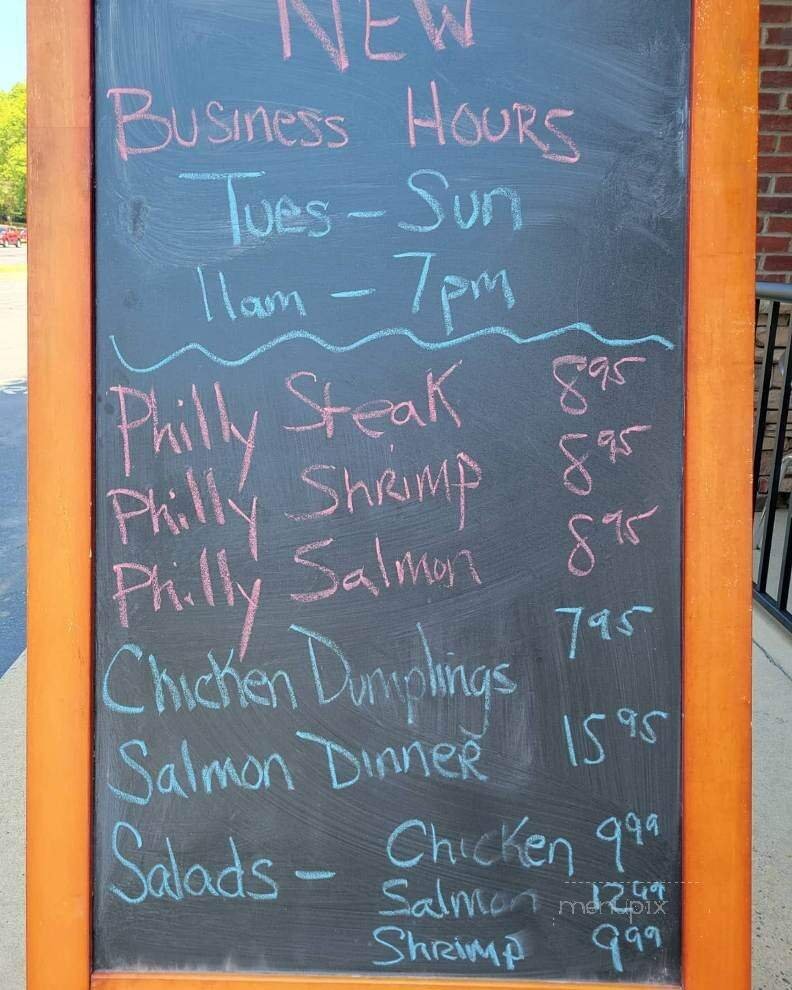 NEW
Business Hours
Tues - Sun
11am - 7pm
Philly Steak 8.95
Philly Shrimp 8.95
Philly Salmon 8.95
Chicken Dumplings 7.95
Salmon Dinner 15.95
Salads - Chicken 9.99
Salmon 12.99
menupix
Shrimp 9.99